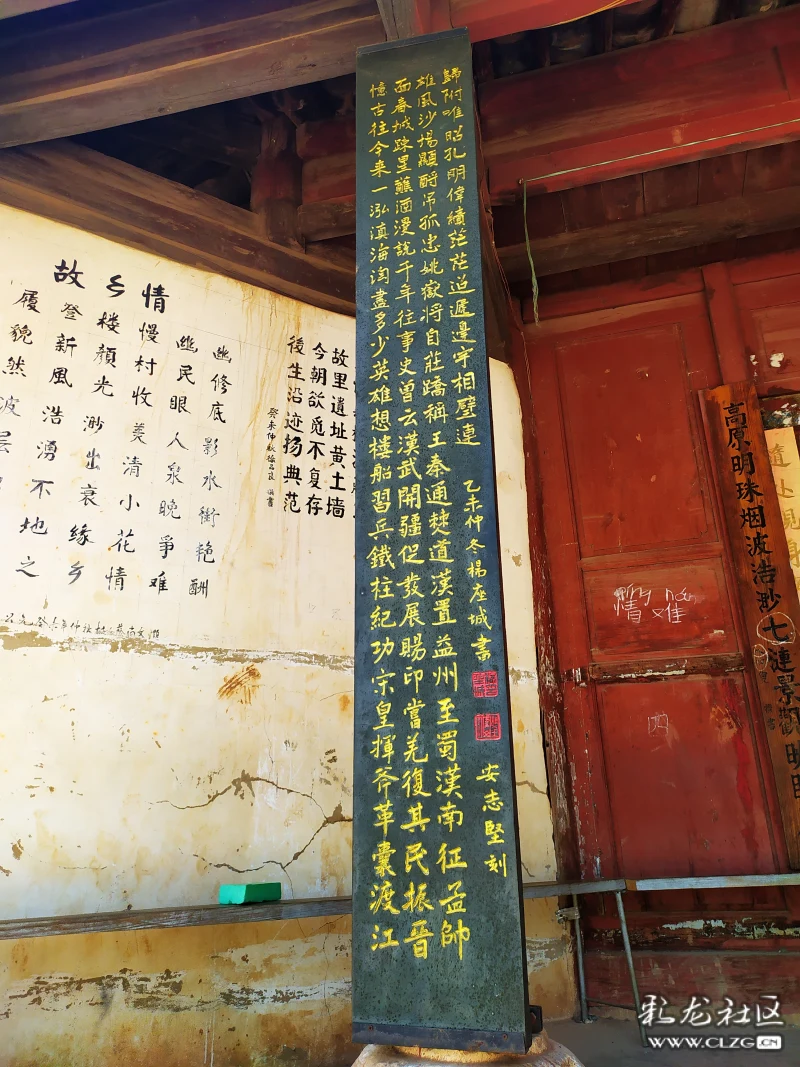 憧古往今来一泓滇海淘盡多少英雄想樓船習兵鐵柱紀功宋皇揮斧革囊渡江
面春城疎星蘸酒漫說千年往事史曾云漢武開疆促發展賜印嘗羌復其民振晉
雄風沙場顯爵吊孤忠姚嶽將自莊蹻稱王秦通僰道漢置益州至蜀漢南征孟帥
歸附唯昭孔明偉績茫茫迢遞邊宇相壁連
乙未仲冬楊座城書
安志堅刻
高原明珠烟波浩渺七連景觀映
故里遗址黄土墙
今朝欲觅不复存
後生沿迹扬典范
故乡情
幽修底影水衢艳酬
幽民眼人泉晚爭难
慢村收羡清小花情
楼颜光渺出衰缘乡
登新風浩湧不地之
履貌然波
情难
彩龙社区
WWW.CLZG.CN